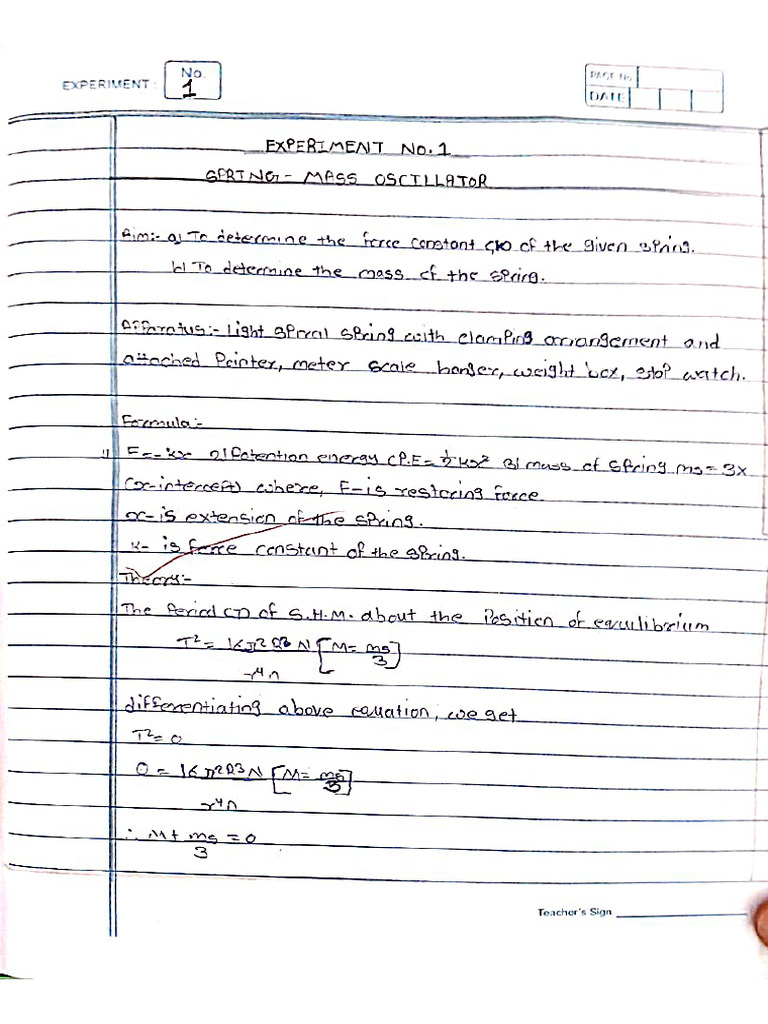 EXPERIMENT : No. 1
PAGE No
DATE
EXPERIMENT NO. 1
SPRING - MASS OSCILLATOR
Aim:- a) To determine the force constant (k) of the given spring.
b) To determine the mass of the spring.
Apparatus:- Light spiral spring with clamping arrangement and
attached Pointer, meter scale hanger, weight box, stop watch.
Formula:-
1) F=-kx 2) Potention energy (P.E= ½ kx² 3) mass of spring ms = 3x
(x-intercept) where, F-is restoring force
x-is extension of the spring.
k- is force constant of the spring.
Theory:-
The Period (T) of S.H.M. about the Position of equilibrium
T² = 16π²R3N [M= ms/3]
r⁴n
differentiating above equation, we get
T²= 0
0 = 16π²R3N [M= ms/3]
r⁴n
∴ M+ ms/3 = 0
Teacher's Sign